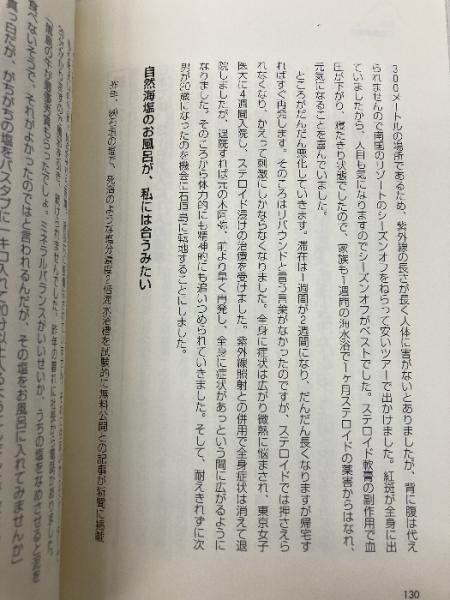 300メートルの場所であるため、紫外線の長さが長く人体に害がないとありましたが、背に腹は代え
られませんので南国のリゾートのシーズンオフをねらって安いツアーで出かけました。紅斑が全身に出
ていましたから、人目も気になりますのでシーズンオフがベストでした。ステロイド軟膏の副作用で血
圧が下がり、寝たきり状態でしたので、家族も1週間の海水浴で1ヶ月ステロイドの薬害からはなれ、
元気になることを喜んでいました。
ところがだんだん悪化していきます。滞在は1週間が2週間になり、だんだん長くなりますが帰宅す
ればすぐ再発します。そのころはリバウンドと言う言葉がなかったのですが、ステロイドでは押さえら
れなくなり、かえって刺激にしかならなくなりました。全身に症状は広がり微熱に悩まされ、東京女子
医大に4週間入院し、ステロイド浸けの治療を受けました。紫外線照射との併用で全身症状は消えて退
院しましたが、退院すれば元の木阿弥、前より早く再発し、全身に症状があっという間に広がるように
なりました。そのころから体力的にも精神的にも追いつめられていきました。そして、耐えきれずに次
男が20歳になったのを機会に石垣島に転地することにしました。
自然海塩のお風呂が、私には合うみたい
の塩で、死海のような塩分濃度の海水治療を試験的に無料公開との記事が新聞に掲載
ミネラルバランスがいいせいか、うちの塩をなめさせると
食べないそうで、それがよかったのではと言われるんだが、その塩をお風呂に入れてみませんか」
真っ白だが、がちがちの塩をバスタブに一キロ入れて20分以上入るように
130